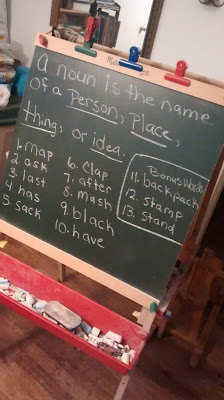 A noun is the name
of a Person, Place,
thing, or idea.
1. map
2 ask
3. last
4. has
5. sack
6. clap
7. after
8. mash
9. black
10. have
Bonus Words
11. backpack
12. stamp
13. stand